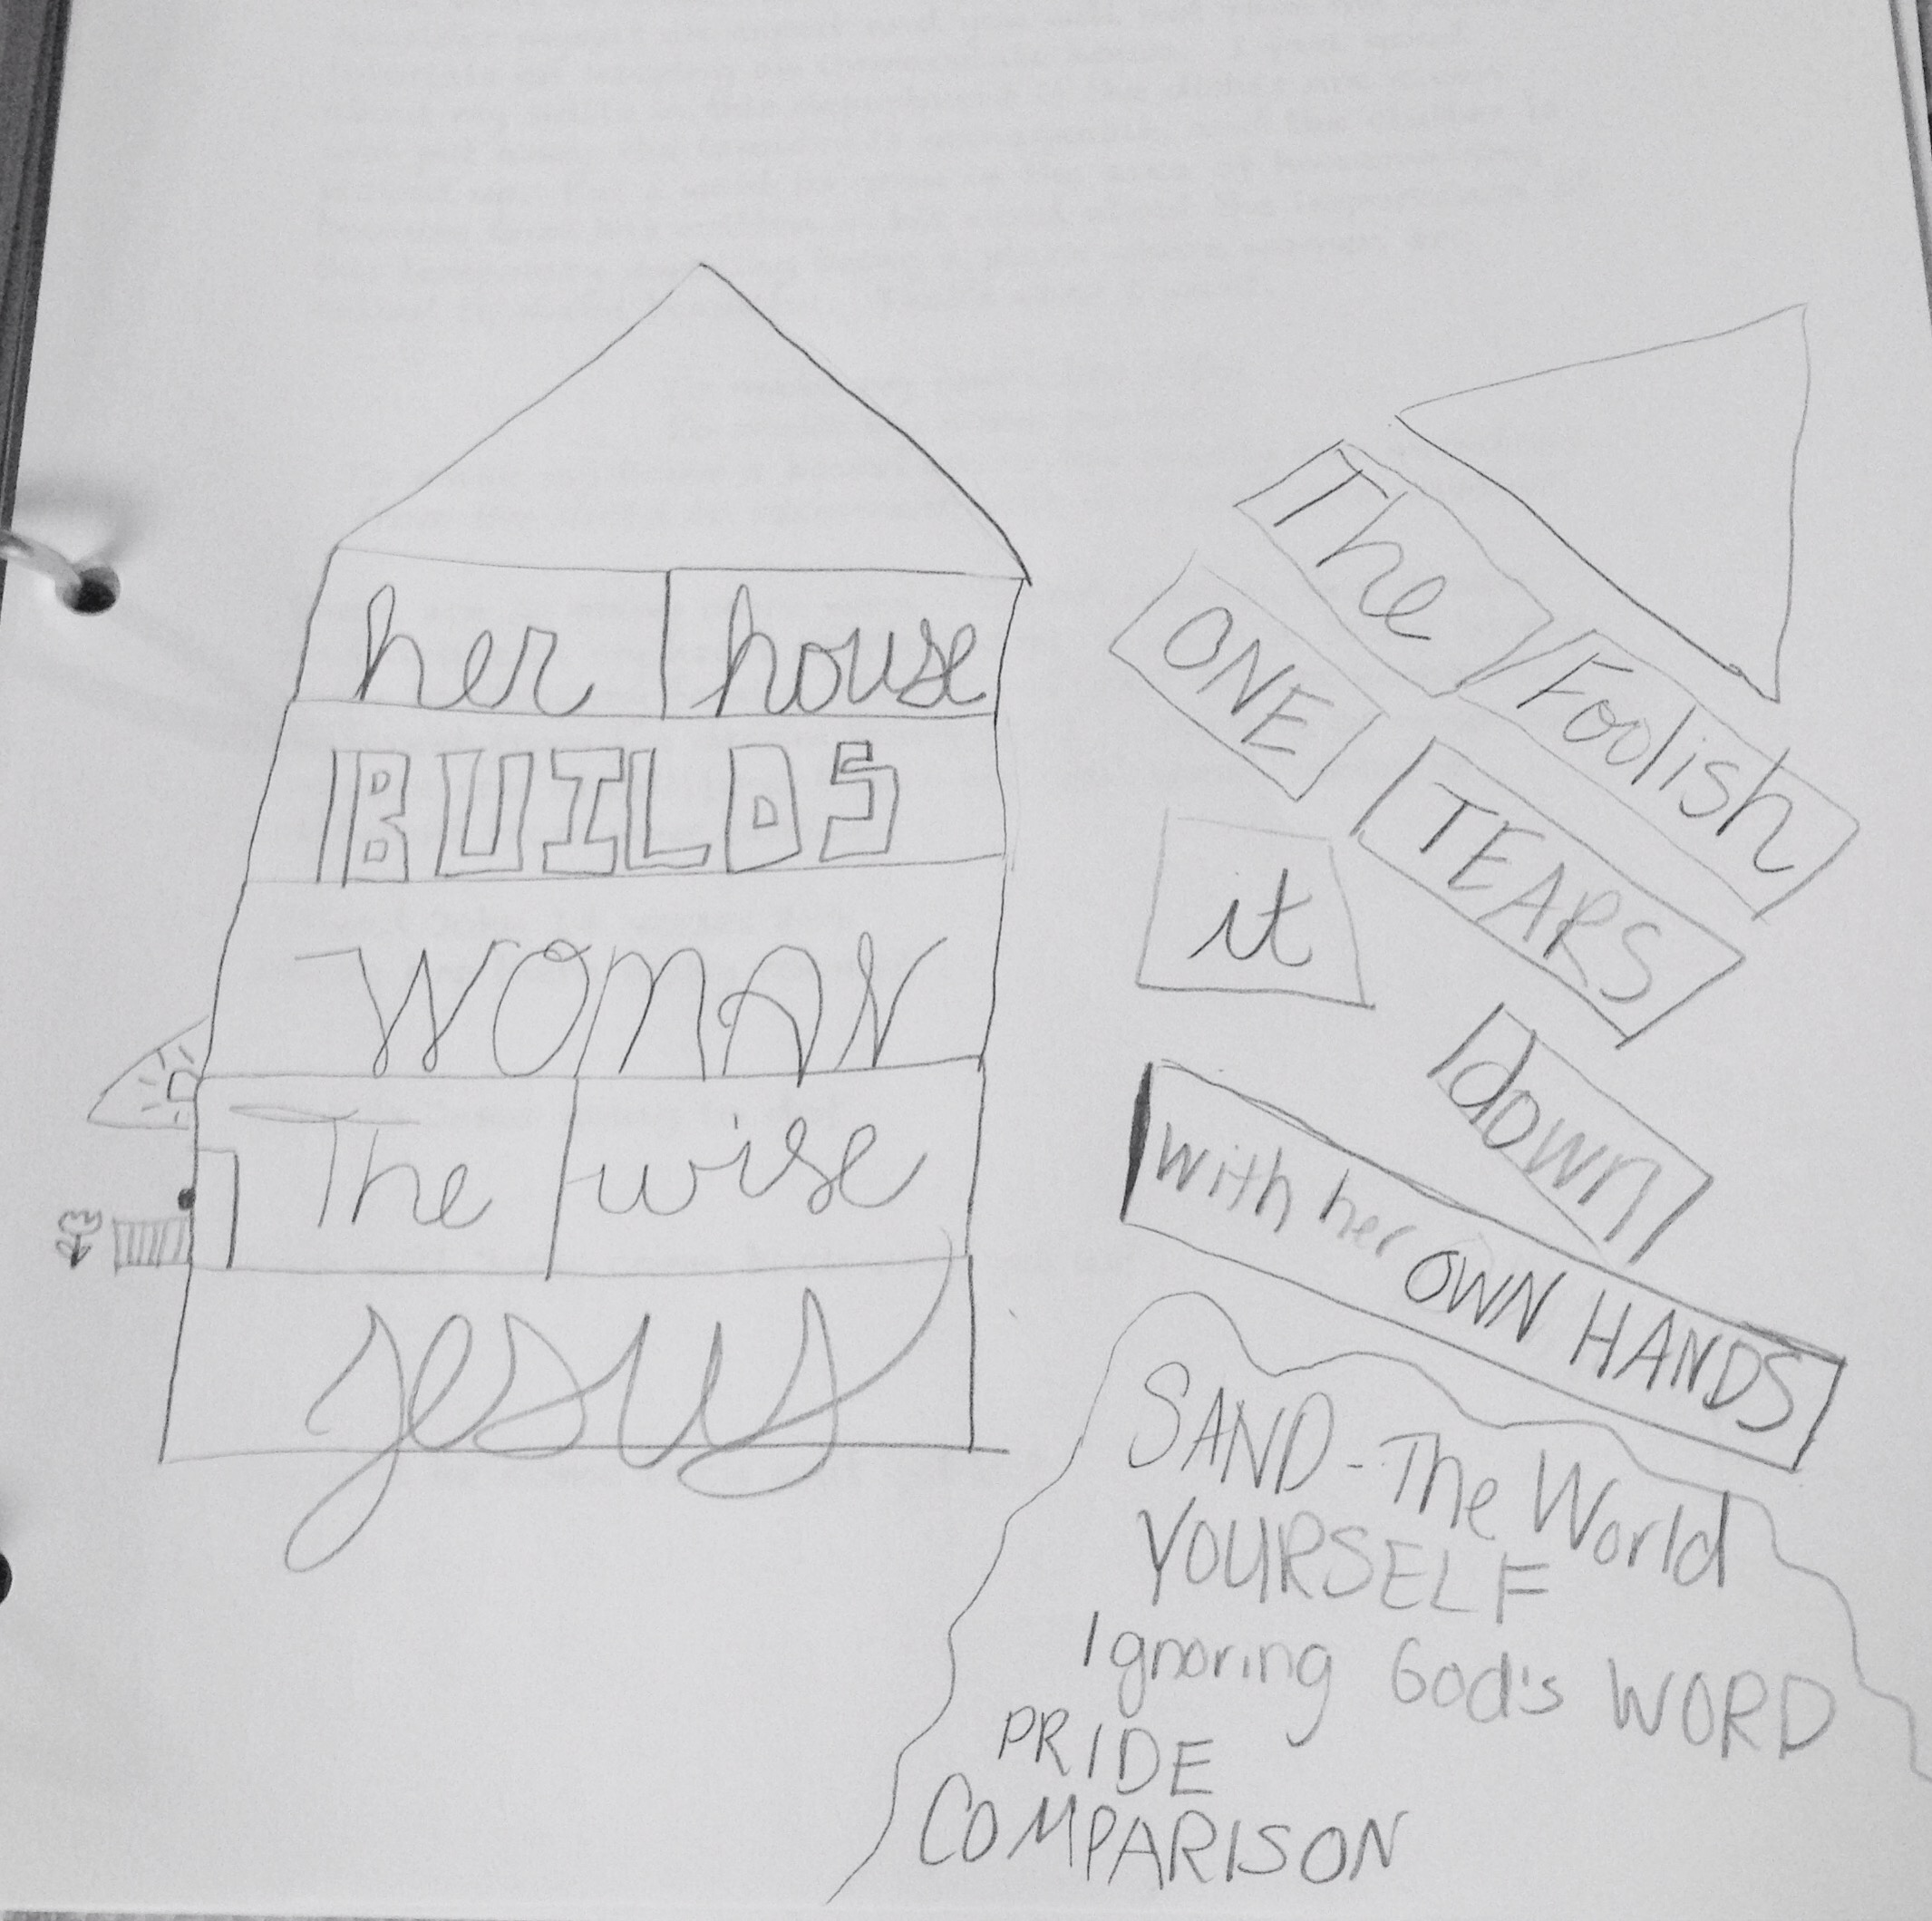 her house
BUILDS
WOMAN
The wise
Jesus
The Foolish
ONE TEARS
it
down
with her OWN HANDS
SAND - The World
YOURSELF
Ignoring God's WORD
PRIDE
COMPARISON